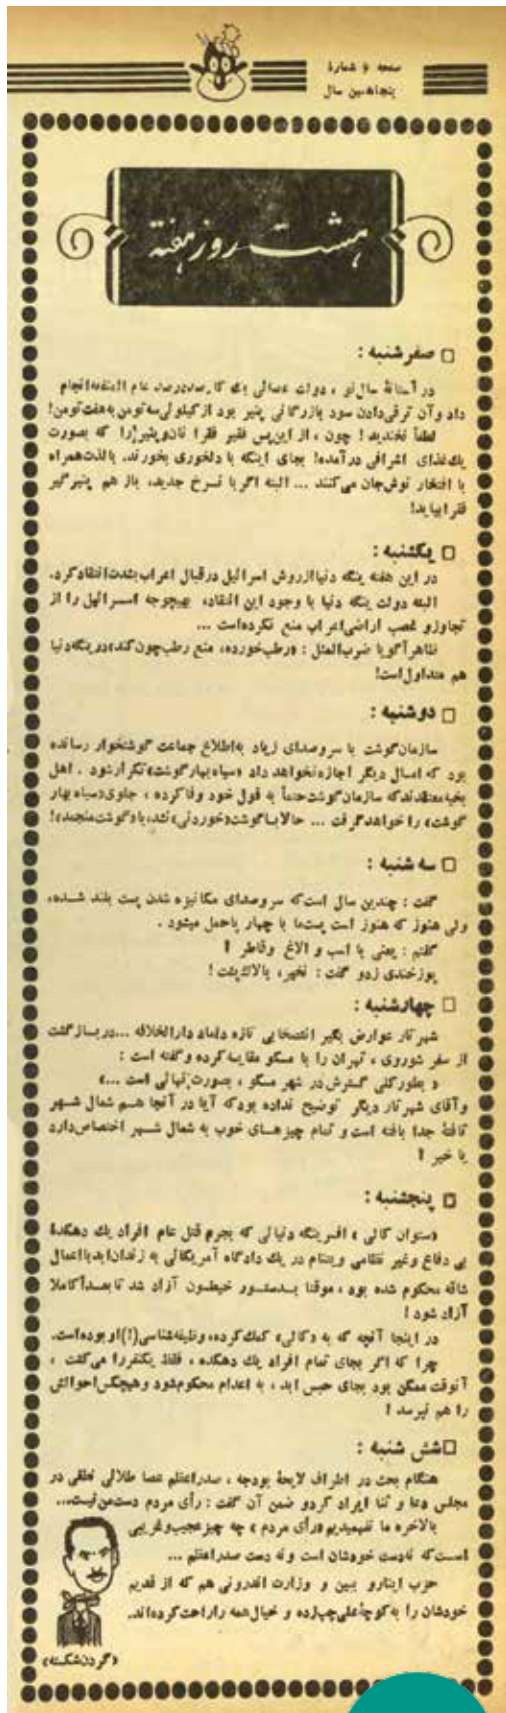 صفحه ۶ شمارهٔ
پنجاهمین سال
هشت روز هفته
صفر شنبه :
در آستانهٔ سال نو ، دولت عصائی یك كار صددرصد عام المنفعه انجام
داد و آن ترقی دادن سود بازرگانی پنیر بود از كیلوئی سه تومن به هفت تومن!
لطفاً نخندید! چون ، از این پس فقیر فقرا نان و پنیر را كه بصورت
یك غذای اشرافی درآمده! بجای اینكه با دلخوری بخورند، با لذت همراه
با افتخار نوش جان می كنند ... البته اگر با نرخ جدید، باز هم پنیر گیر
فقرا بیاید!
یكشنبه :
در این هفته ینگه دنیا از روش اسرائیل در قبال اعراب بشدت انتقاد كرد.
البته دولت ینگه دنیا با وجود این انتقاد، بهیچوجه اسرائیل را از
تجاوز و غصب اراضی اعراب منع نكرده است ...
ظاهراً گویا ضرب المثل : «رطب خورده، منع رطب چون كند» در ینگه دنیا
هم متداول است!
دوشنبه :
سازمان گوشت با سروصدای زیاد به اطلاع جماعت گوشتخوار رسانده
بود كه امسال دیگر اجازه نخواهد داد «سیاه بهار گوشت» تكرار شود . اهل
بخیه معتقدند كه سازمان گوشت حتماً به قول خود وفا كرده ، جلوی «سیاه بهار
گوشت» را خواهد گرفت ... حالا با گوشت «خوردنی» نشد، با «گوشت منجمد»!
سه شنبه :
گفت : چندین سال است كه سروصدای مكانیزه شدن پست بلند شده،
ولی هنوز كه هنوز است پست ما با چهار پا حمل میشود .
گفتم : یعنی با اسب و الاغ و قاطر !
پوزخندی زد و گفت : نخیر، با لاك پشت !
چهارشنبه :
شهر تار عوارض بگیر انتصابی تازه داماد دارالخلافه ... در بازگشت
از سفر شوروی ، تهران را با مسكو مقایسه كرده و گفته است :
« بطور كلی گسترش در شهر مسكو ، بصورت نهائی است ...»
و آقای شهر تار دیگر توضیح نداده بود كه آیا در آنجا هم شمال شهر
تافتهٔ جدا بافته است و تمام چیزهای خوب به شمال شهر اختصاص دارد
یا خیر !
پنجشنبه :
«ستوان كالی » افسر ینگه دنیائی كه بجرم قتل عام افراد یك دهكدهٔ
بی دفاع و غیر نظامی ویتنام در یك دادگاه آمریكائی به زندان ابد با اعمال
شاقه محكوم شده بود ، موقتا بدستور خیطسون آزاد شد تا بعداً كاملا
آزاد شود !
در اینجا آنچه كه به «كالی» كمك كرده، وظیفه شناسی(!) او بوده است.
چرا كه اگر بجای تمام افراد یك دهكده ، فقط یكنفر را می كشت ،
آنوقت ممكن بود بجای حبس ابد ، به اعدام محكوم شود و هیچكس احوالش
را هم نپرسد !
شش شنبه :
هنگام بحث در اطراف لایحهٔ بودجه ، صدراعظم عصا طلائی نطقی در
مجلس دعا و ثنا ایراد كرد و ضمن آن گفت : رأی مردم دست من نیست...
بالاخره ما نفهمیدیم «رأی مردم » چه چیز عجیب و غریبی
است كه نه دست خودشان است و نه دست صدراعظم ...
حزب اینارو ببین و وزارت اندرونی هم كه از قدیم
خودشان را به كوچهٔ علی چپ زده و خیال همه را راحت كرده اند.
«گردن شكسته»